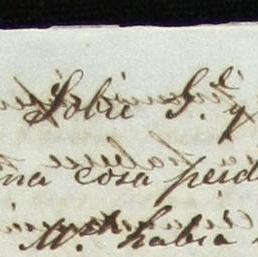 Sobre S.ᵈ q
na cosa perd
M.ᵗ habia